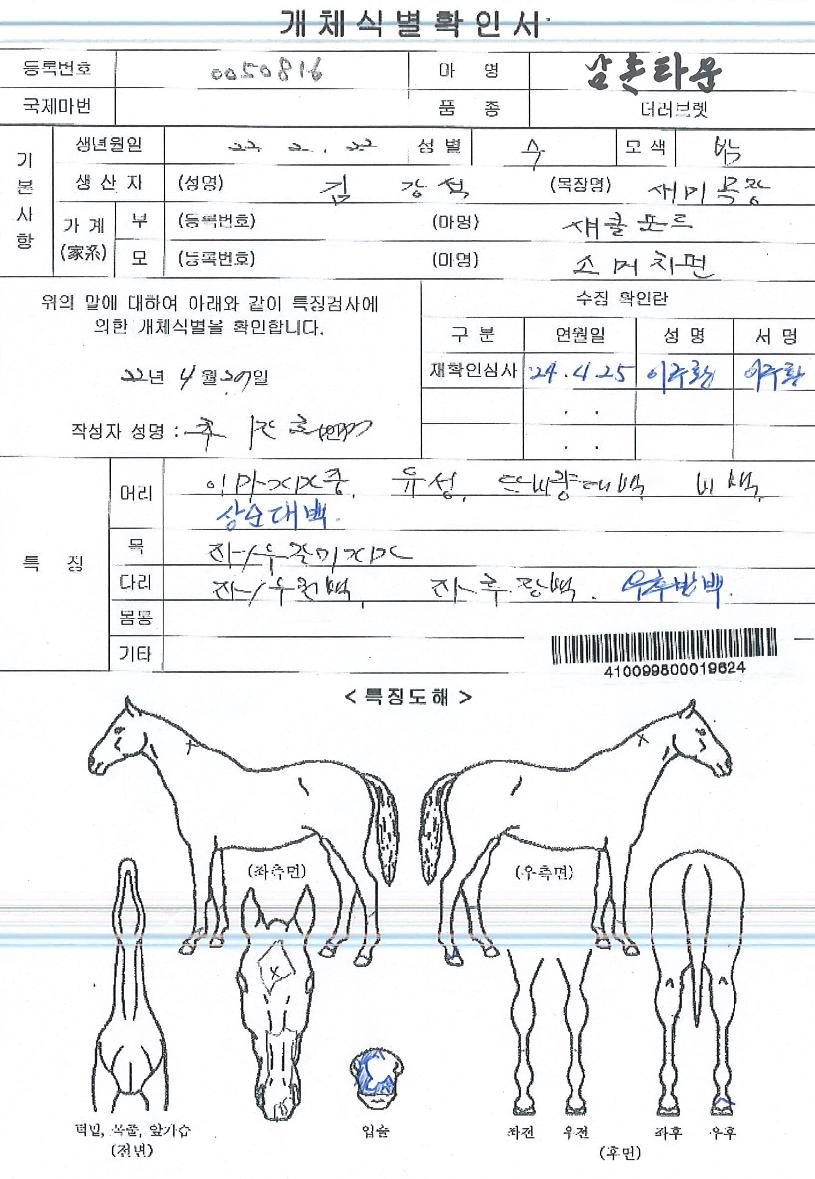 개체식별확인서
등록번호 0050816 마 명 남촌타운
국제마번 품 종 더러브렛
기본사항
생년월일 22. 2. 22 성 별 수 모 색 밤
생 산 자 (성명) 김 강석 (목장명) 세미목장
가 계 (家系) 부 (등록번호) (마명) 섀클포드
모 (등록번호) (마명)
위의 말에 대하여 아래와 같이 특징검사에
의한 개체식별을 확인합니다.
22년 4월 20일
작성자 성명 :
수정 확인란
구 분 연월일 성 명 서 명
재확인심사 '24.4.25 이주환 이주환
. .
. .
특 징
머리 이마가마중, 유성, 비백,
상순대백.
목 좌/우갈기가마
다리 우후반백.
몸통
기타
410099800019624
< 특징도해 >
(좌측면) (우측면)
턱밑, 목줄, 앞가슴
(전면)
입술
좌전 우전 좌후 우후
(후면)